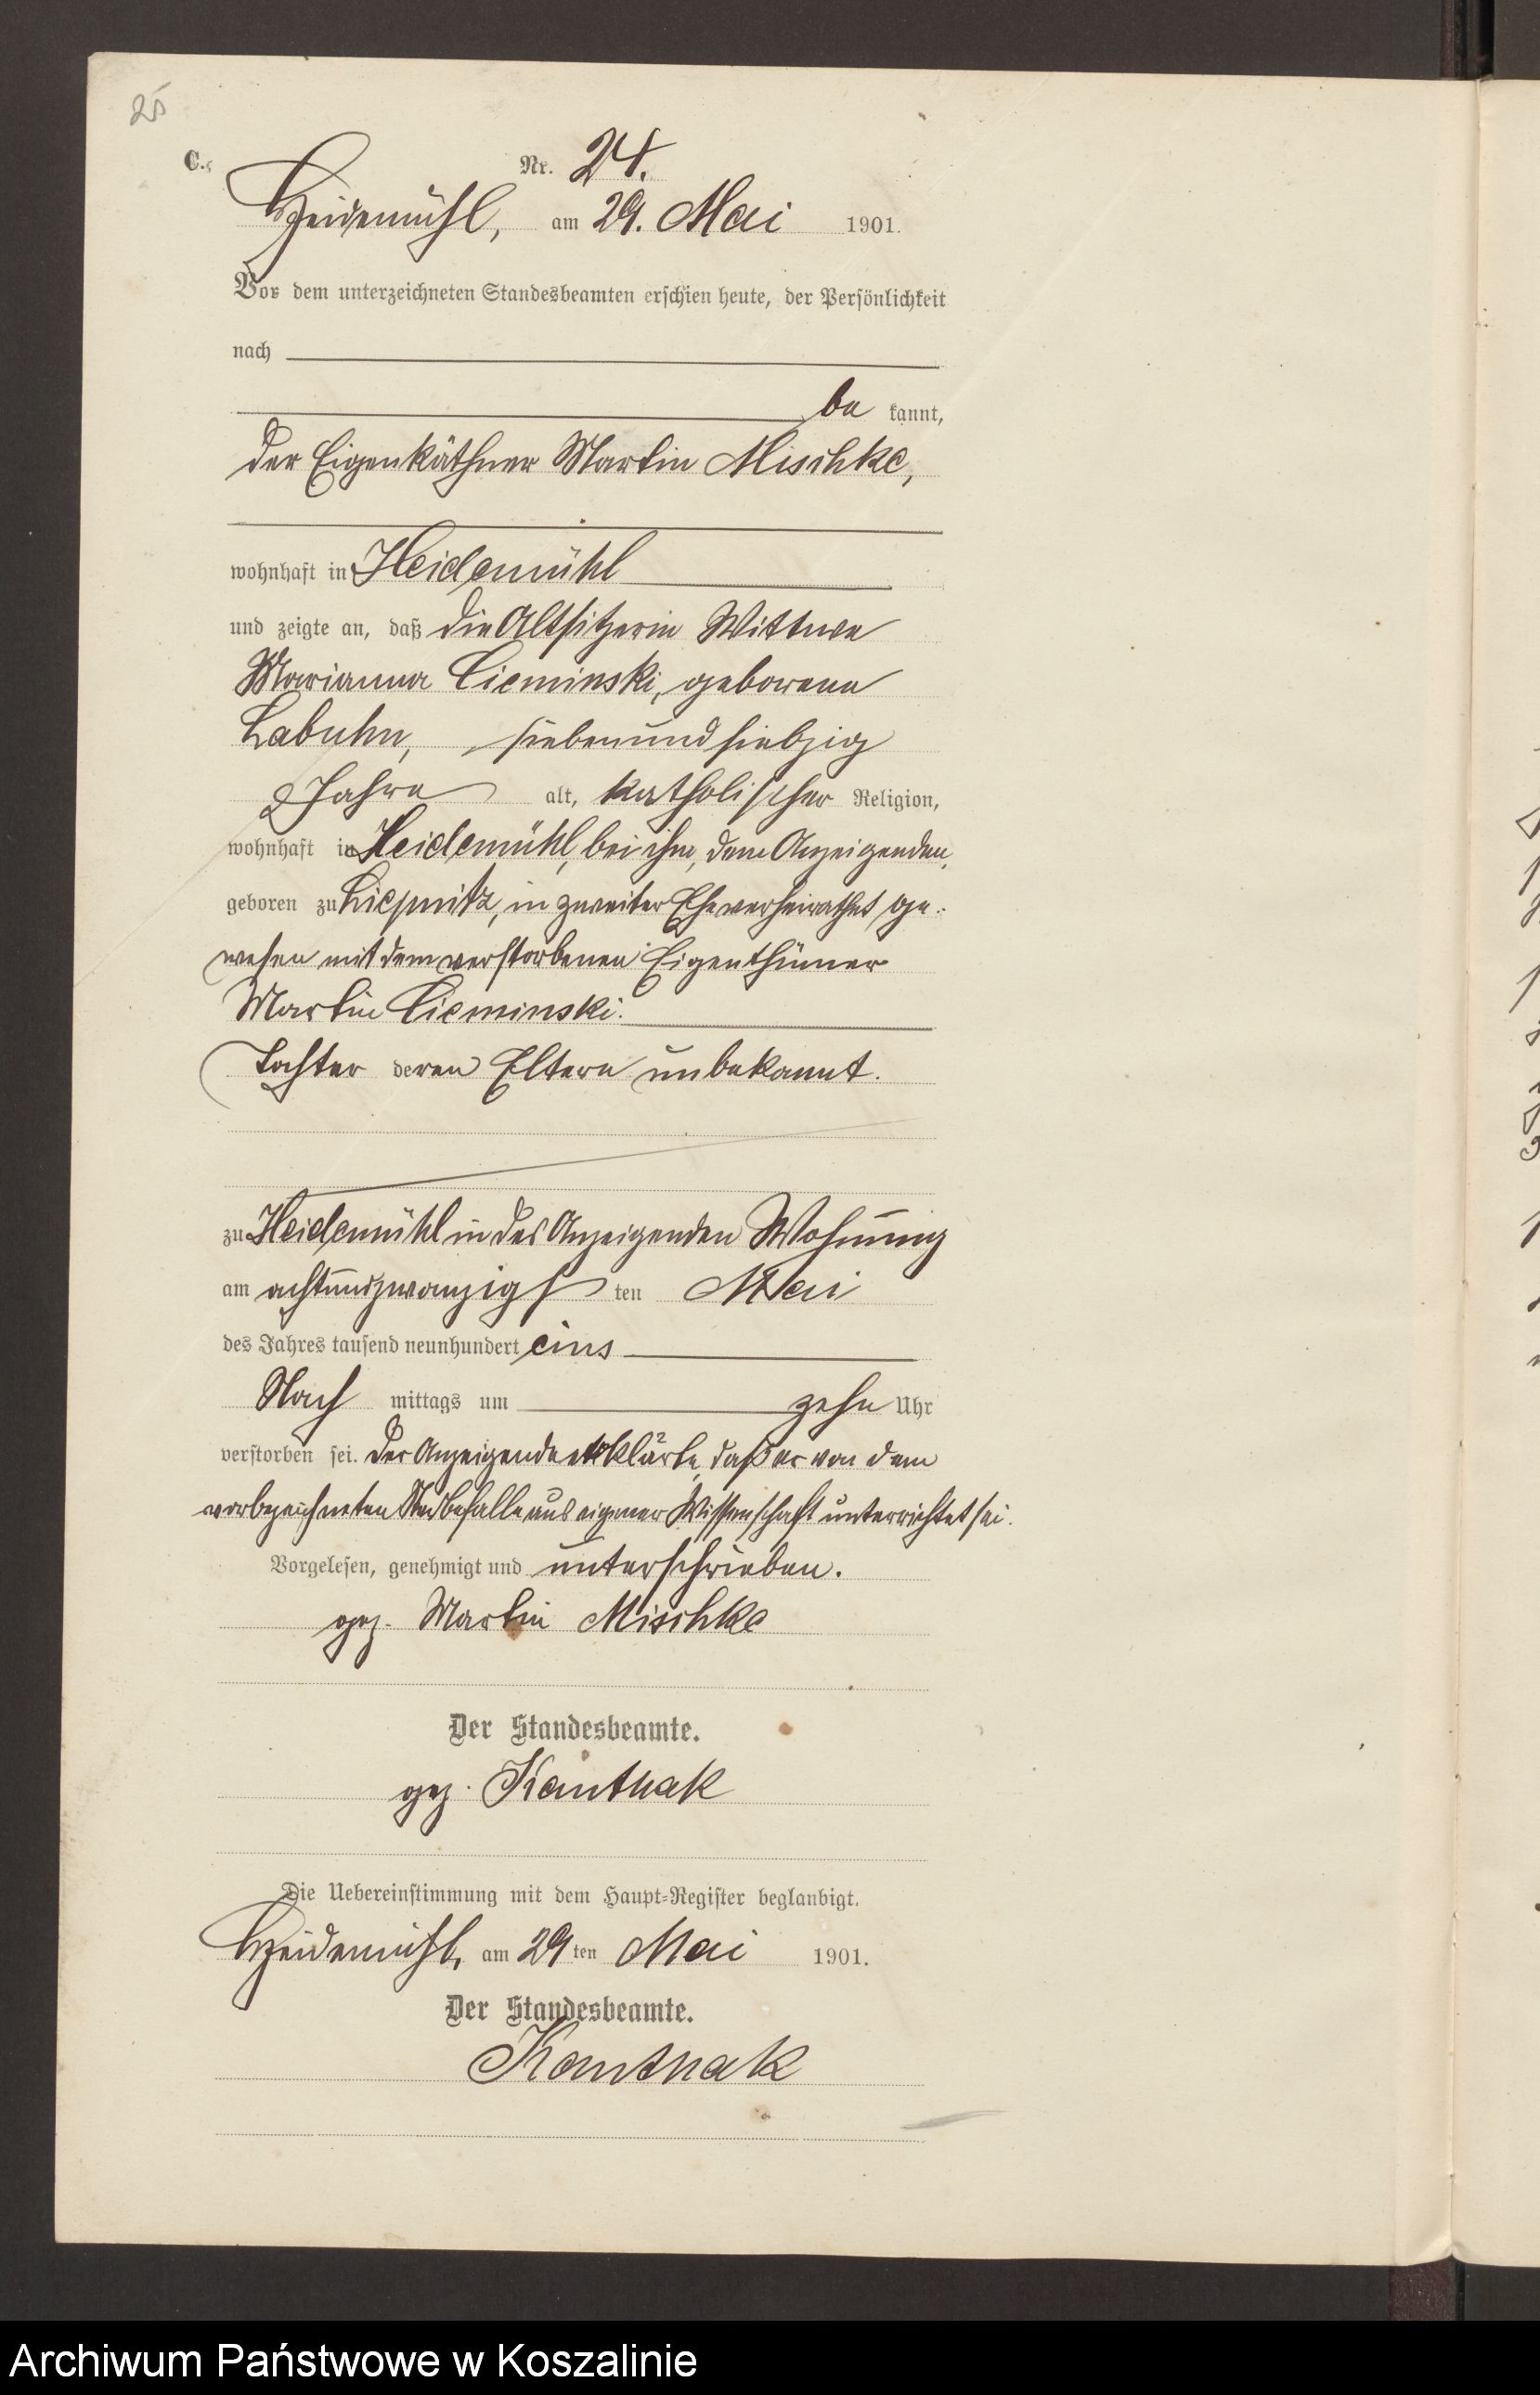 25
C.
Nr. 24.
Heidemühl, am 29. Mai 1901.
Vor dem unterzeichneten Standesbeamten erschien heute, der Persönlichkeit
nach
be kannt,
der Eigenkäthner Martin Mischke,
wohnhaft in Heidemühl
und zeigte an, daß die Altsitzerin Wittwe
Marianna Cieminski, geborene
Labuhn, siebenundsiebzig
Jahre alt, katholischer Religion,
wohnhaft in Heidemühl, bei ihm, dem Anzeigenden,
geboren zu Liepnitz, in zweiter Ehe verheirathet ge-
wesen mit dem verstorbenen Eigenthümer
Martin Cieminski.
Tochter deren Eltern unbekannt.
zu Heidemühl in des Anzeigenden Wohnung
am achtundzwanzigs ten Mai
des Jahres tausend neunhundert eins
Nach mittags um zehn Uhr
verstorben sei. Der Anzeigende erklärte, daß er von dem
vorbezeichneten Sterbefalle aus eigener Wissenschaft unterrichtet sei.
Vorgelesen, genehmigt und unterschrieben.
gez. Martin Mischke
Der Standesbeamte.
gez. Kanthak
Die Uebereinstimmung mit dem Haupt-Register beglaubigt.
Heidemühl, am 29 ten Mai 1901.
Der Standesbeamte.
Kanthak
Archiwum Państwowe w Koszalinie